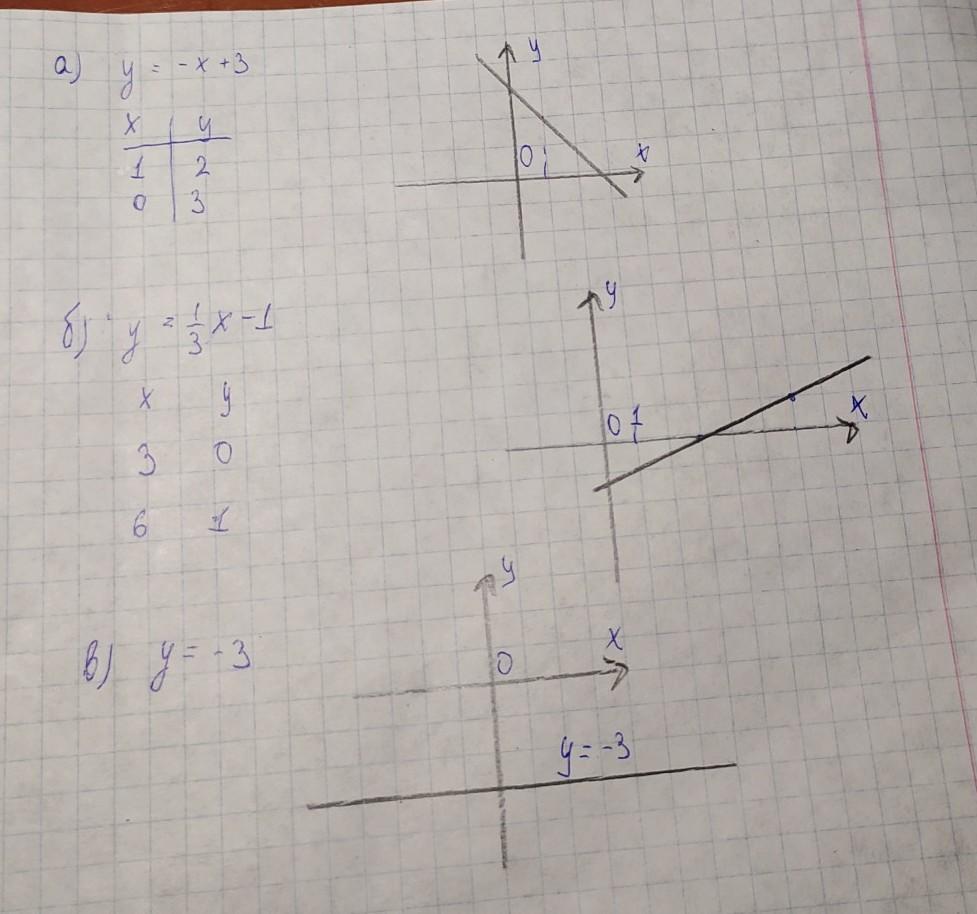 а) y = -x+3
y
x y
1 2
0 3
0 1 x
б) y = 1/3 x - 1
y
x y
3 0
6 1
0 1 x
y
в) y = -3
0 x
y = -3